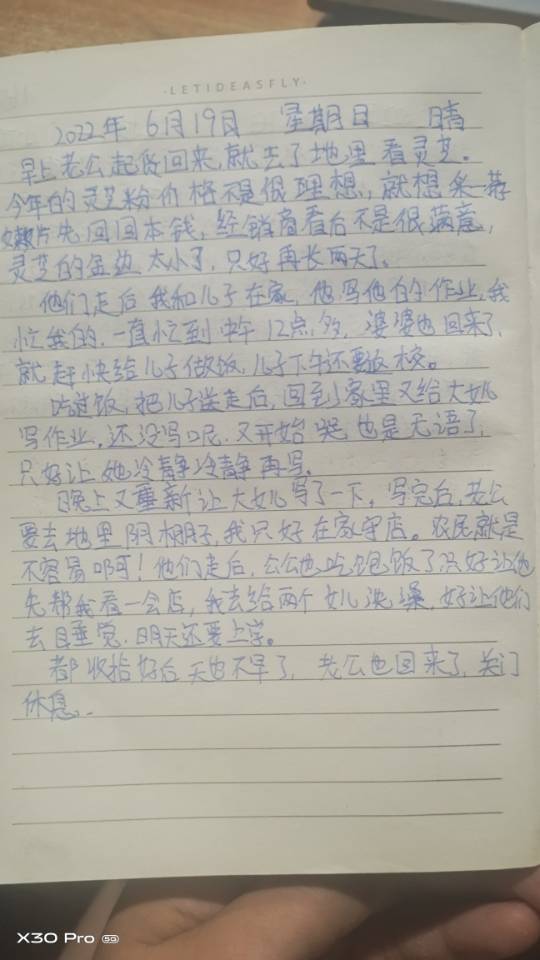 ·LETIDEASFLY·
2022年 6月19日 星期日 晴
早上老公起货回来,就去了地里看灵芝。
今年的灵芝粉价格不是很理想,就想采
嫩片先回回本钱,经销商看后不是很满意,
灵芝的金边太小了,只好再长两天了。
他们走后我和儿子在家,他写他的作业,我
忙我的,一直忙到中午12点多,婆婆也回来了,
就赶快给儿子做饭,儿子下午还要返校。
吃过饭,把儿子送走后,回到家里又给大女儿
写作业,还没写呢,又开始哭也是无语了,
只好让她冷静冷静再写。
晚上又重新让大女儿写了一下,写完后,老公
要去地里阴棚子,我只好在家守店。农民就是
不容易啊!他们走后,公公也吃饱饭了只好让他
先帮我看一会店,我去给两个女儿洗澡,好让他们
去睡觉,明天还要上学。
都收拾好后天也不早了,老公也回来了,关门
休息。
X30 Pro 5G